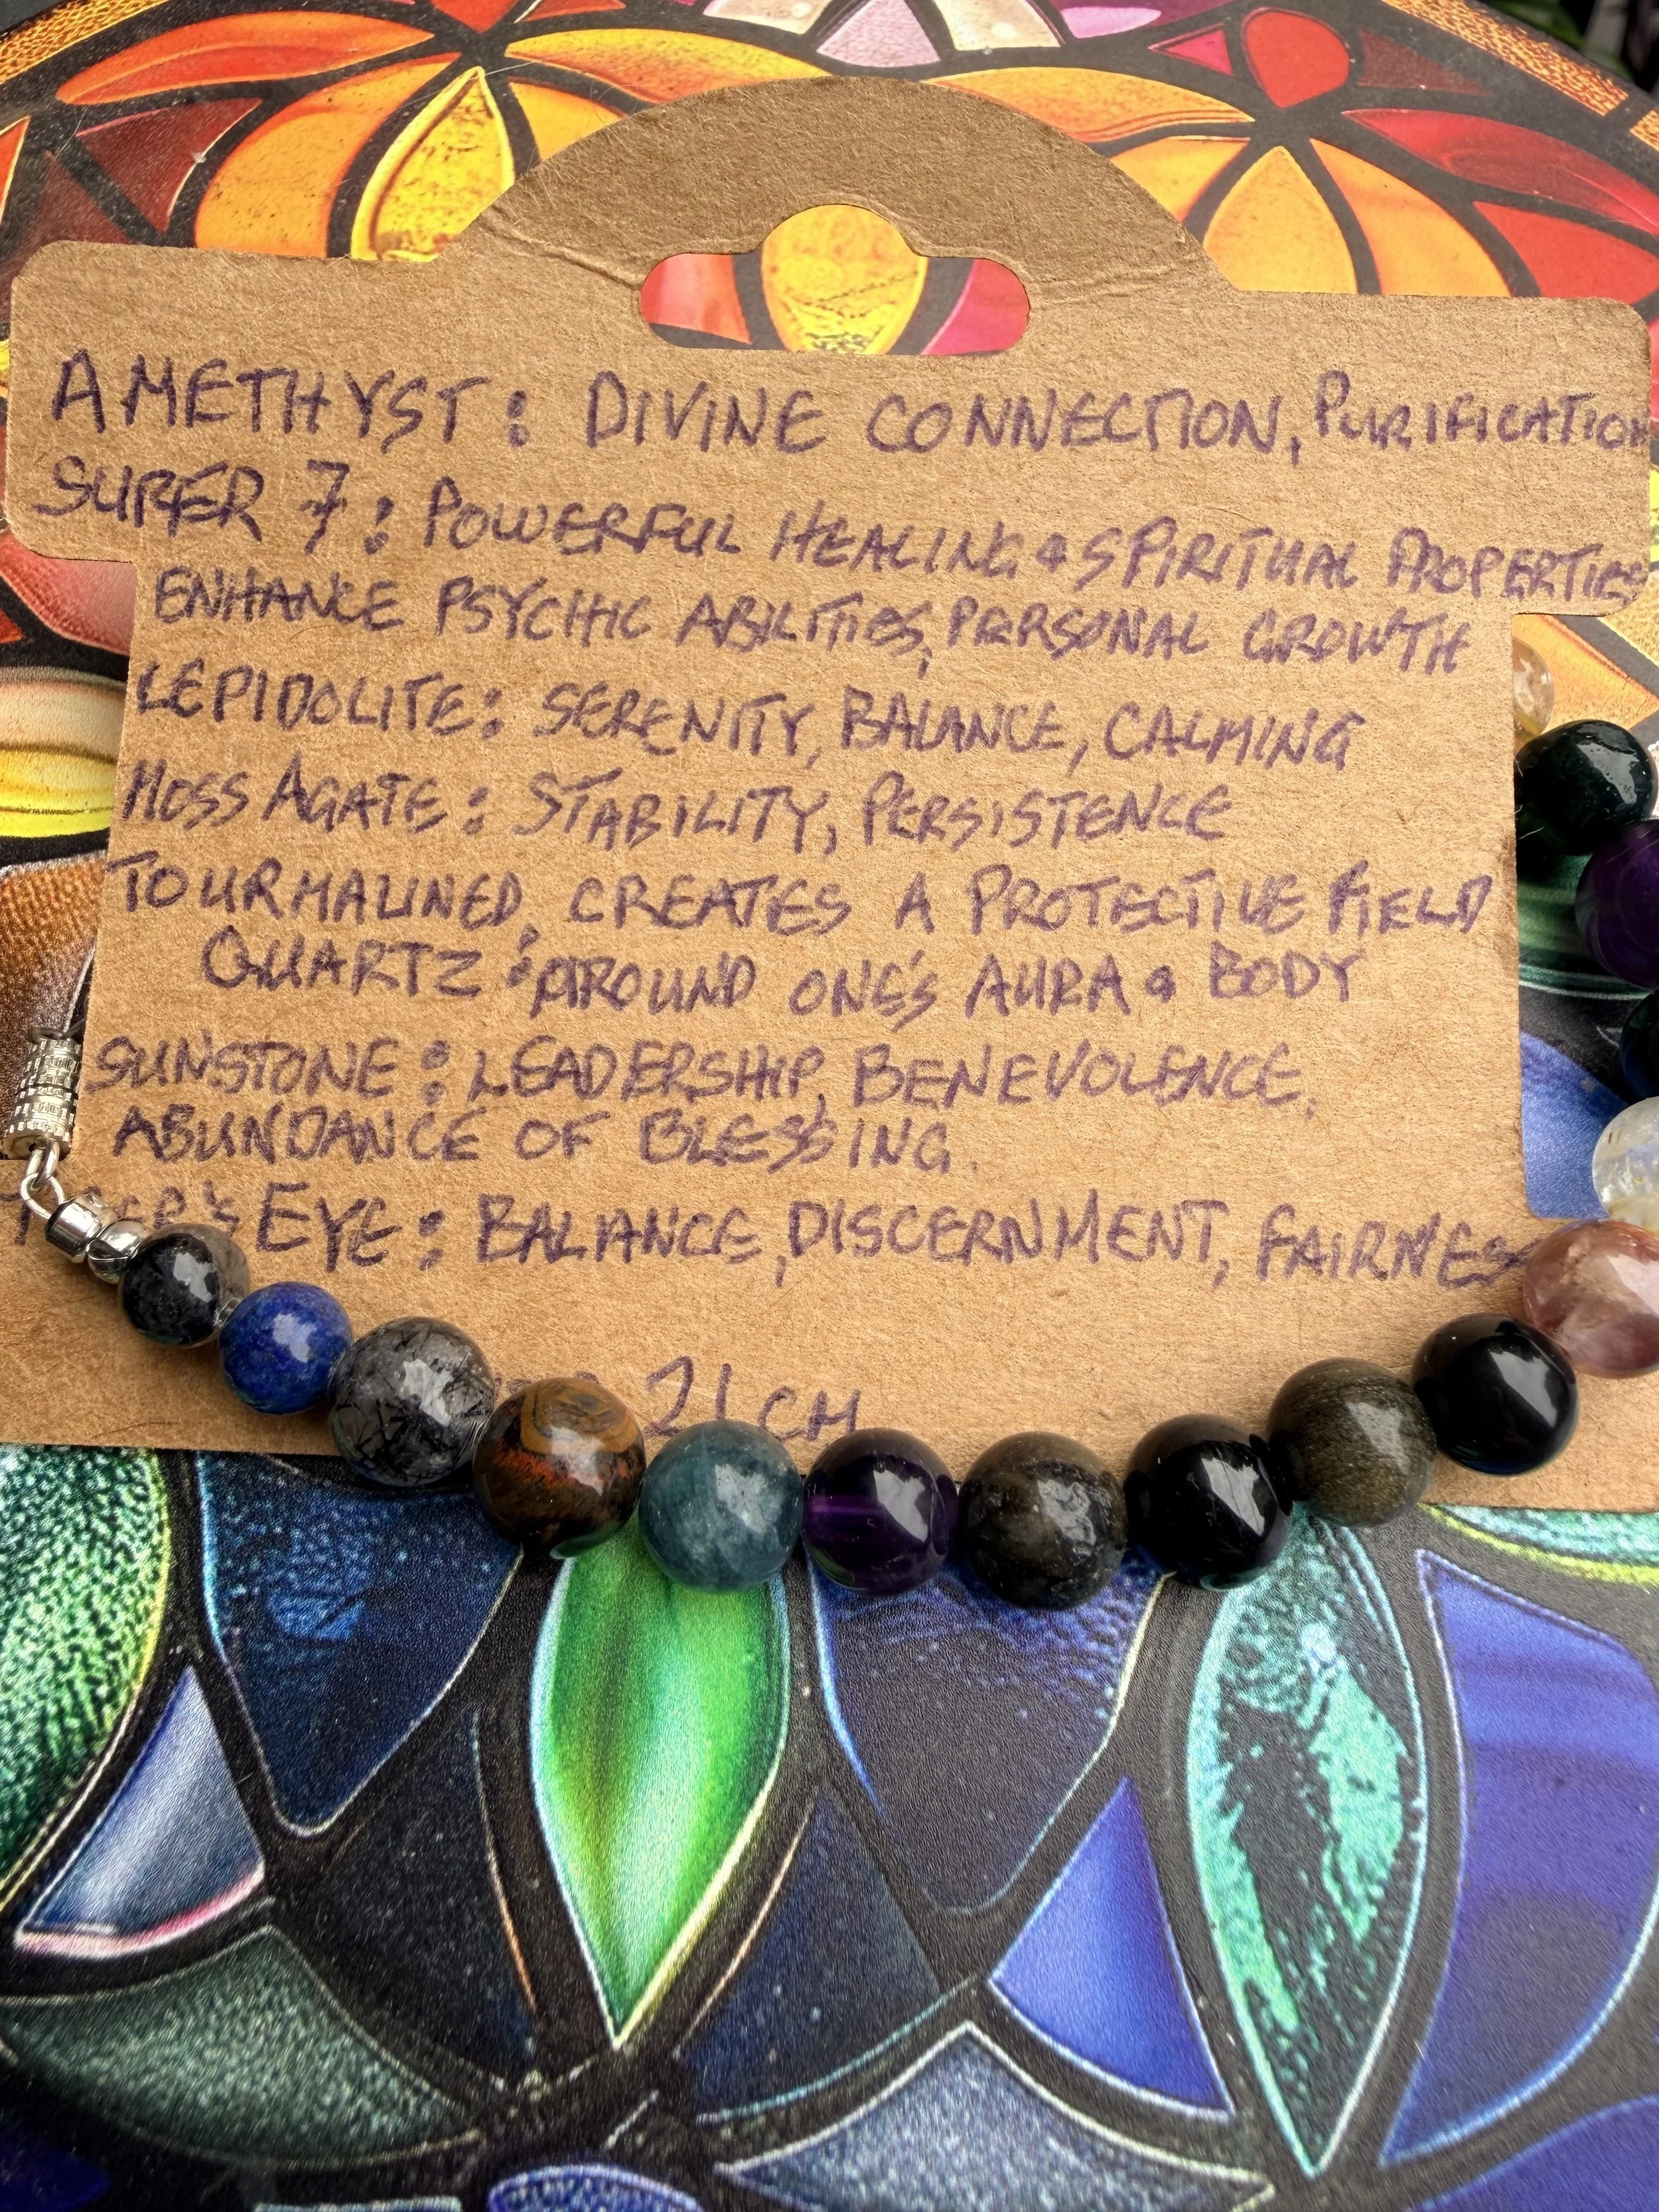 AMETHYST: DIVINE CONNECTION, PURIFICATION
SUPER 7: POWERFUL HEALING & SPIRITUAL PROPERTIES
ENHANCE PSYCHIC ABILITIES, PERSONAL GROWTH
LEPIDOLITE: SERENITY, BALANCE, CALMING
MOSS AGATE: STABILITY, PERSISTENCE
TOURMALINED CREATES A PROTECTIVE FIELD
QUARTZ: AROUND ONE'S AURA & BODY
SUNSTONE: LEADERSHIP, BENEVOLENCE,
ABUNDANCE OF BLESSING.
EYE: BALANCE, DISCERNMENT, FAIRNESS
21CM